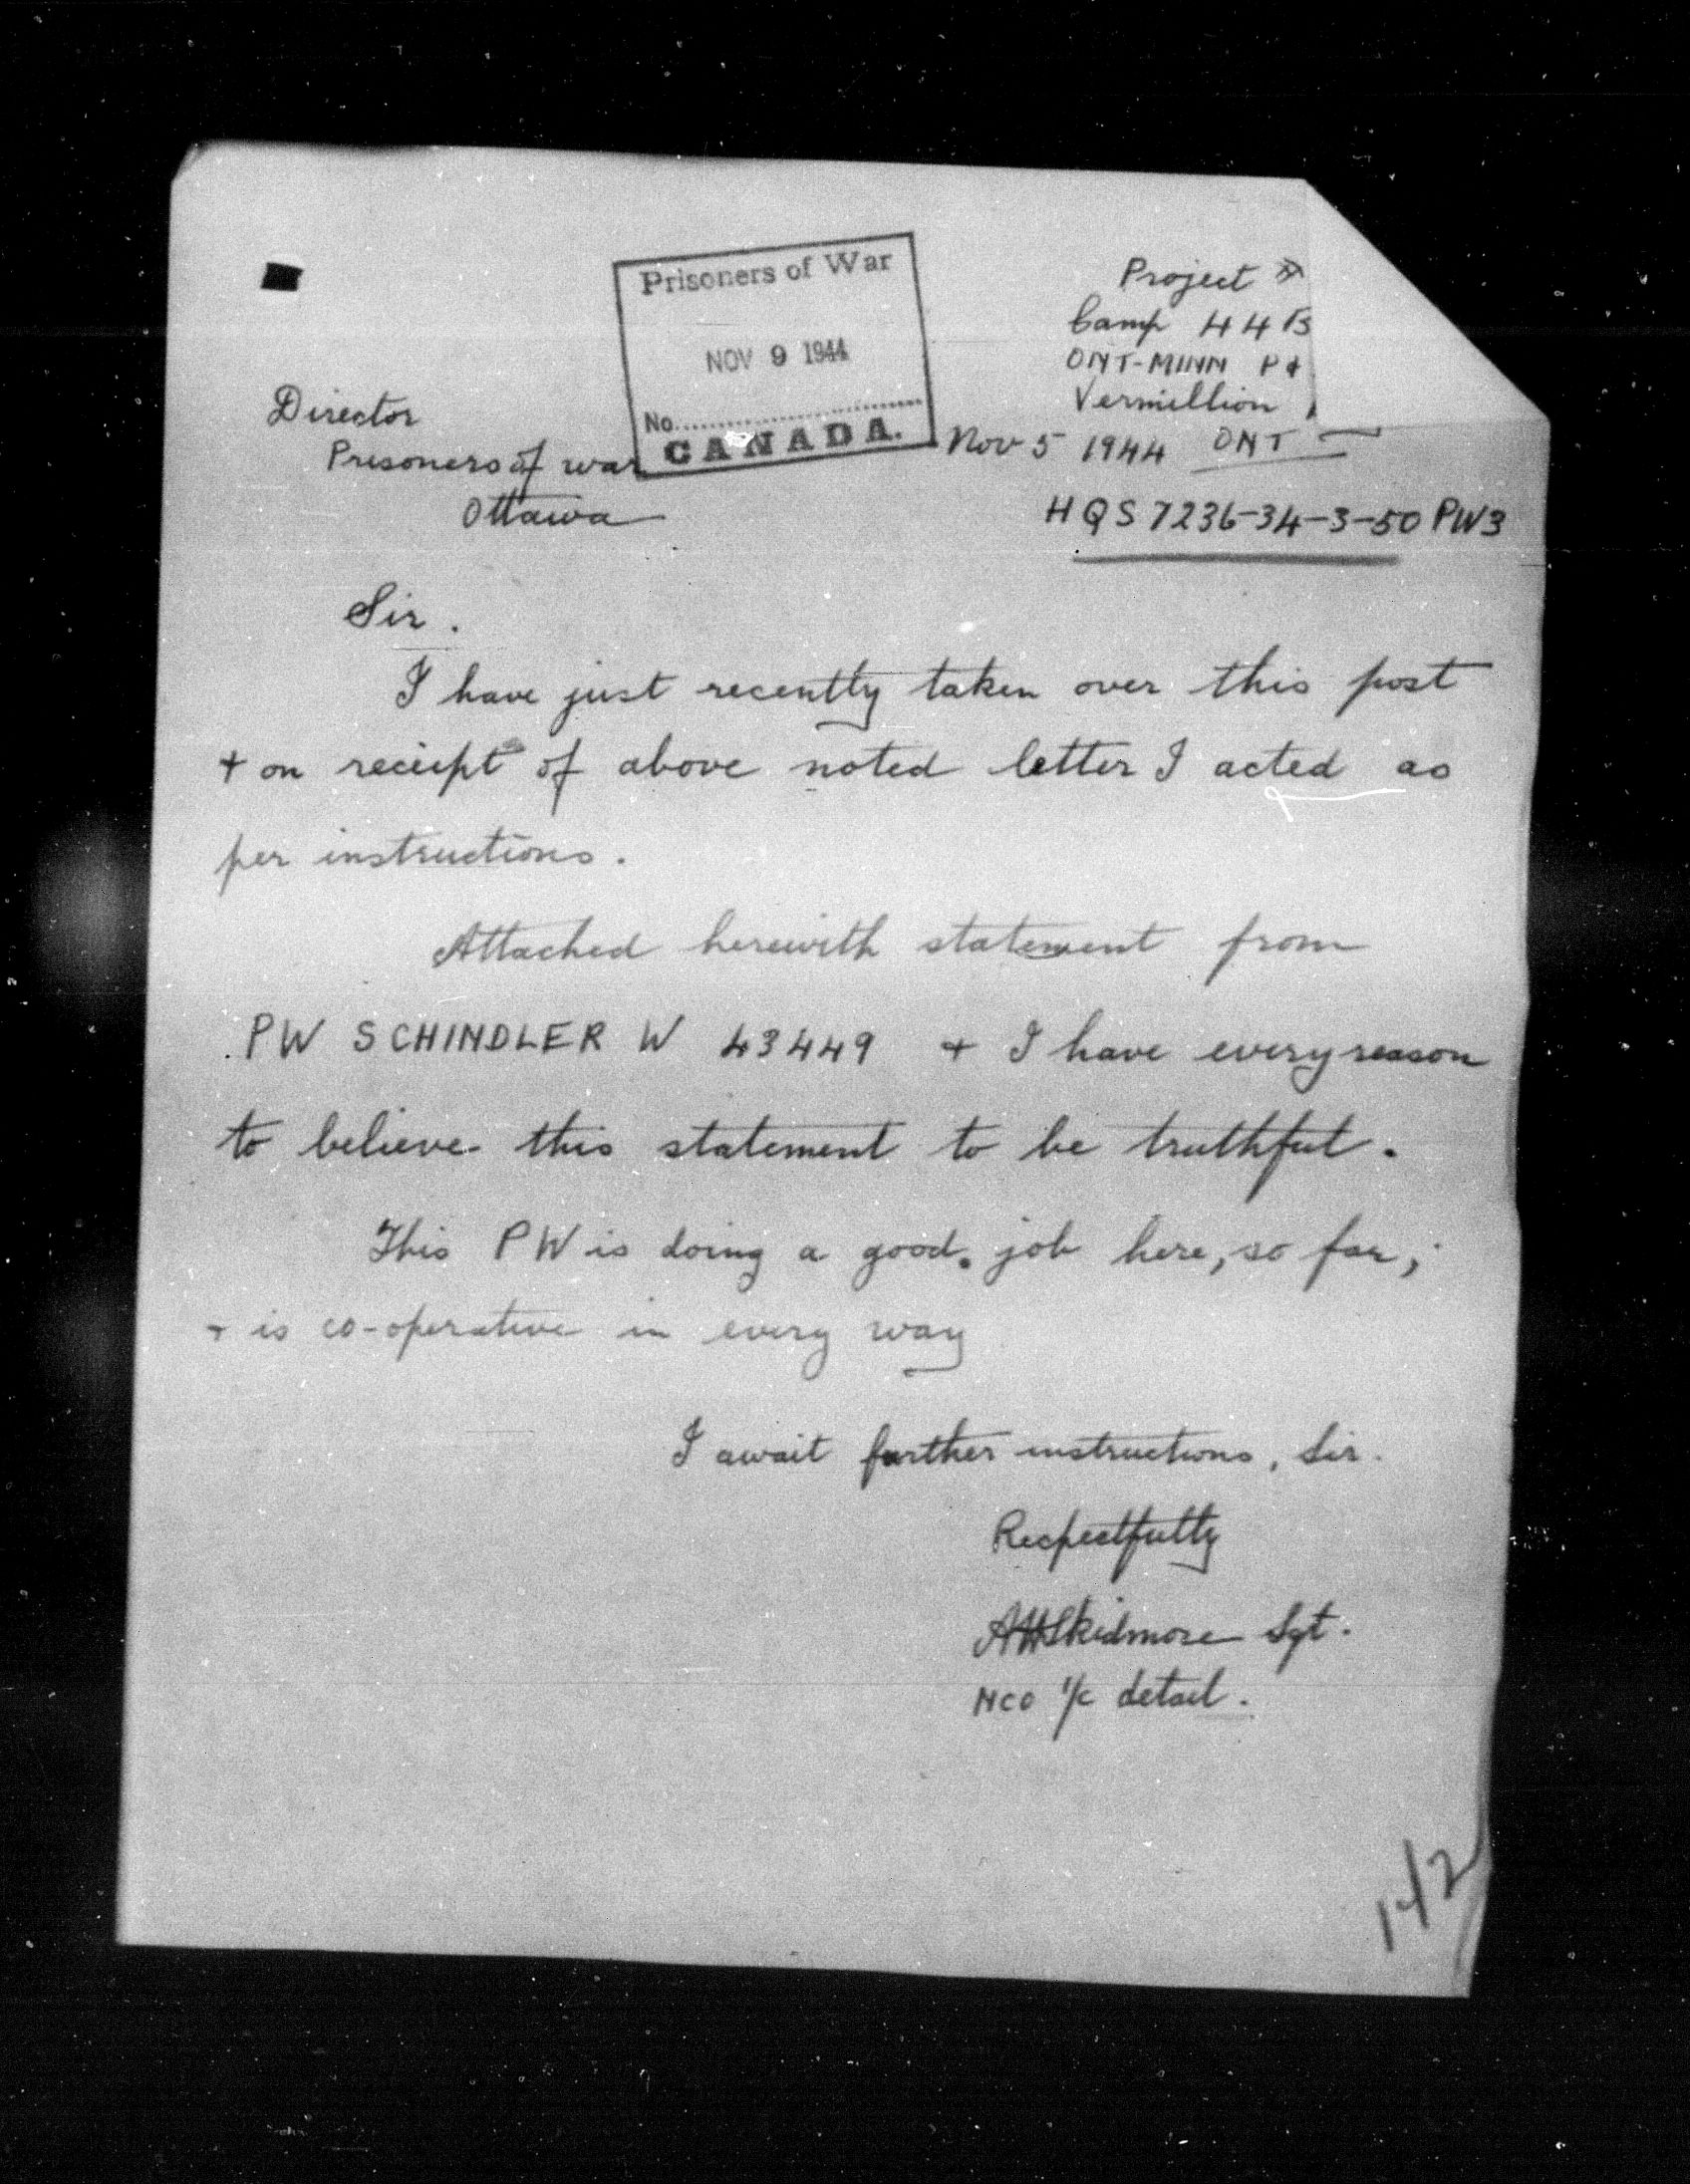 Prisoners of War
NOV 9 1944
No.
CANADA.
Project
Camp 44B
ONT-MINN P+
Vermillion
Nov 5 1944 ONT
Director
Prisoners of war
Ottawa
HQS 7236-34-3-50 PW3
Sir.
I have just recently taken over this post
+ on receipt of above noted letter I acted as
per instructions.
Attached herewith statement from
PW SCHINDLER W 43449 + I have every reason
to believe this statement to be truthful.
This PW is doing a good. job here, so far;
+ is co-operative in every way
I await further instructions, Sir.
Respectfully
AHSkidmore Sgt.
NCO i/c detail.
142